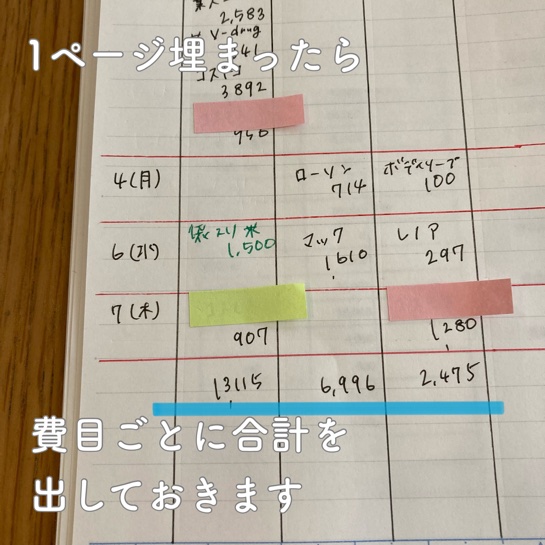 2,583
V-drug
41
コストコ
3892
1ページ埋まったら
4(月)
ローソン
714
ボディソープ
100
6(水)
米
1,500
マック
1,610
レノア
297
7(木)
907
1,280
13,115
6,996
2,475
費目ごとに合計を
出しておきます